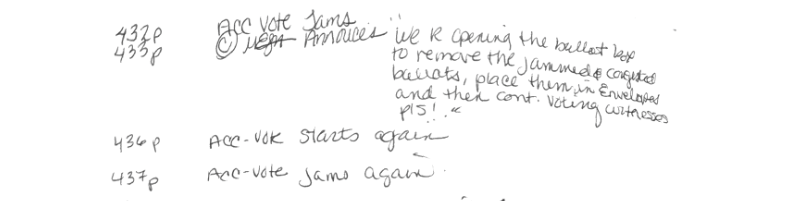 432p Acc Vote Jams
433p © Annouces "We R opening the ballot box
to remove the jammed & congested
ballots, place them in Envelopes
and then cont. voting witnesses
pls!"
436p Acc-Vote starts again
437p Acc-Vote jams again